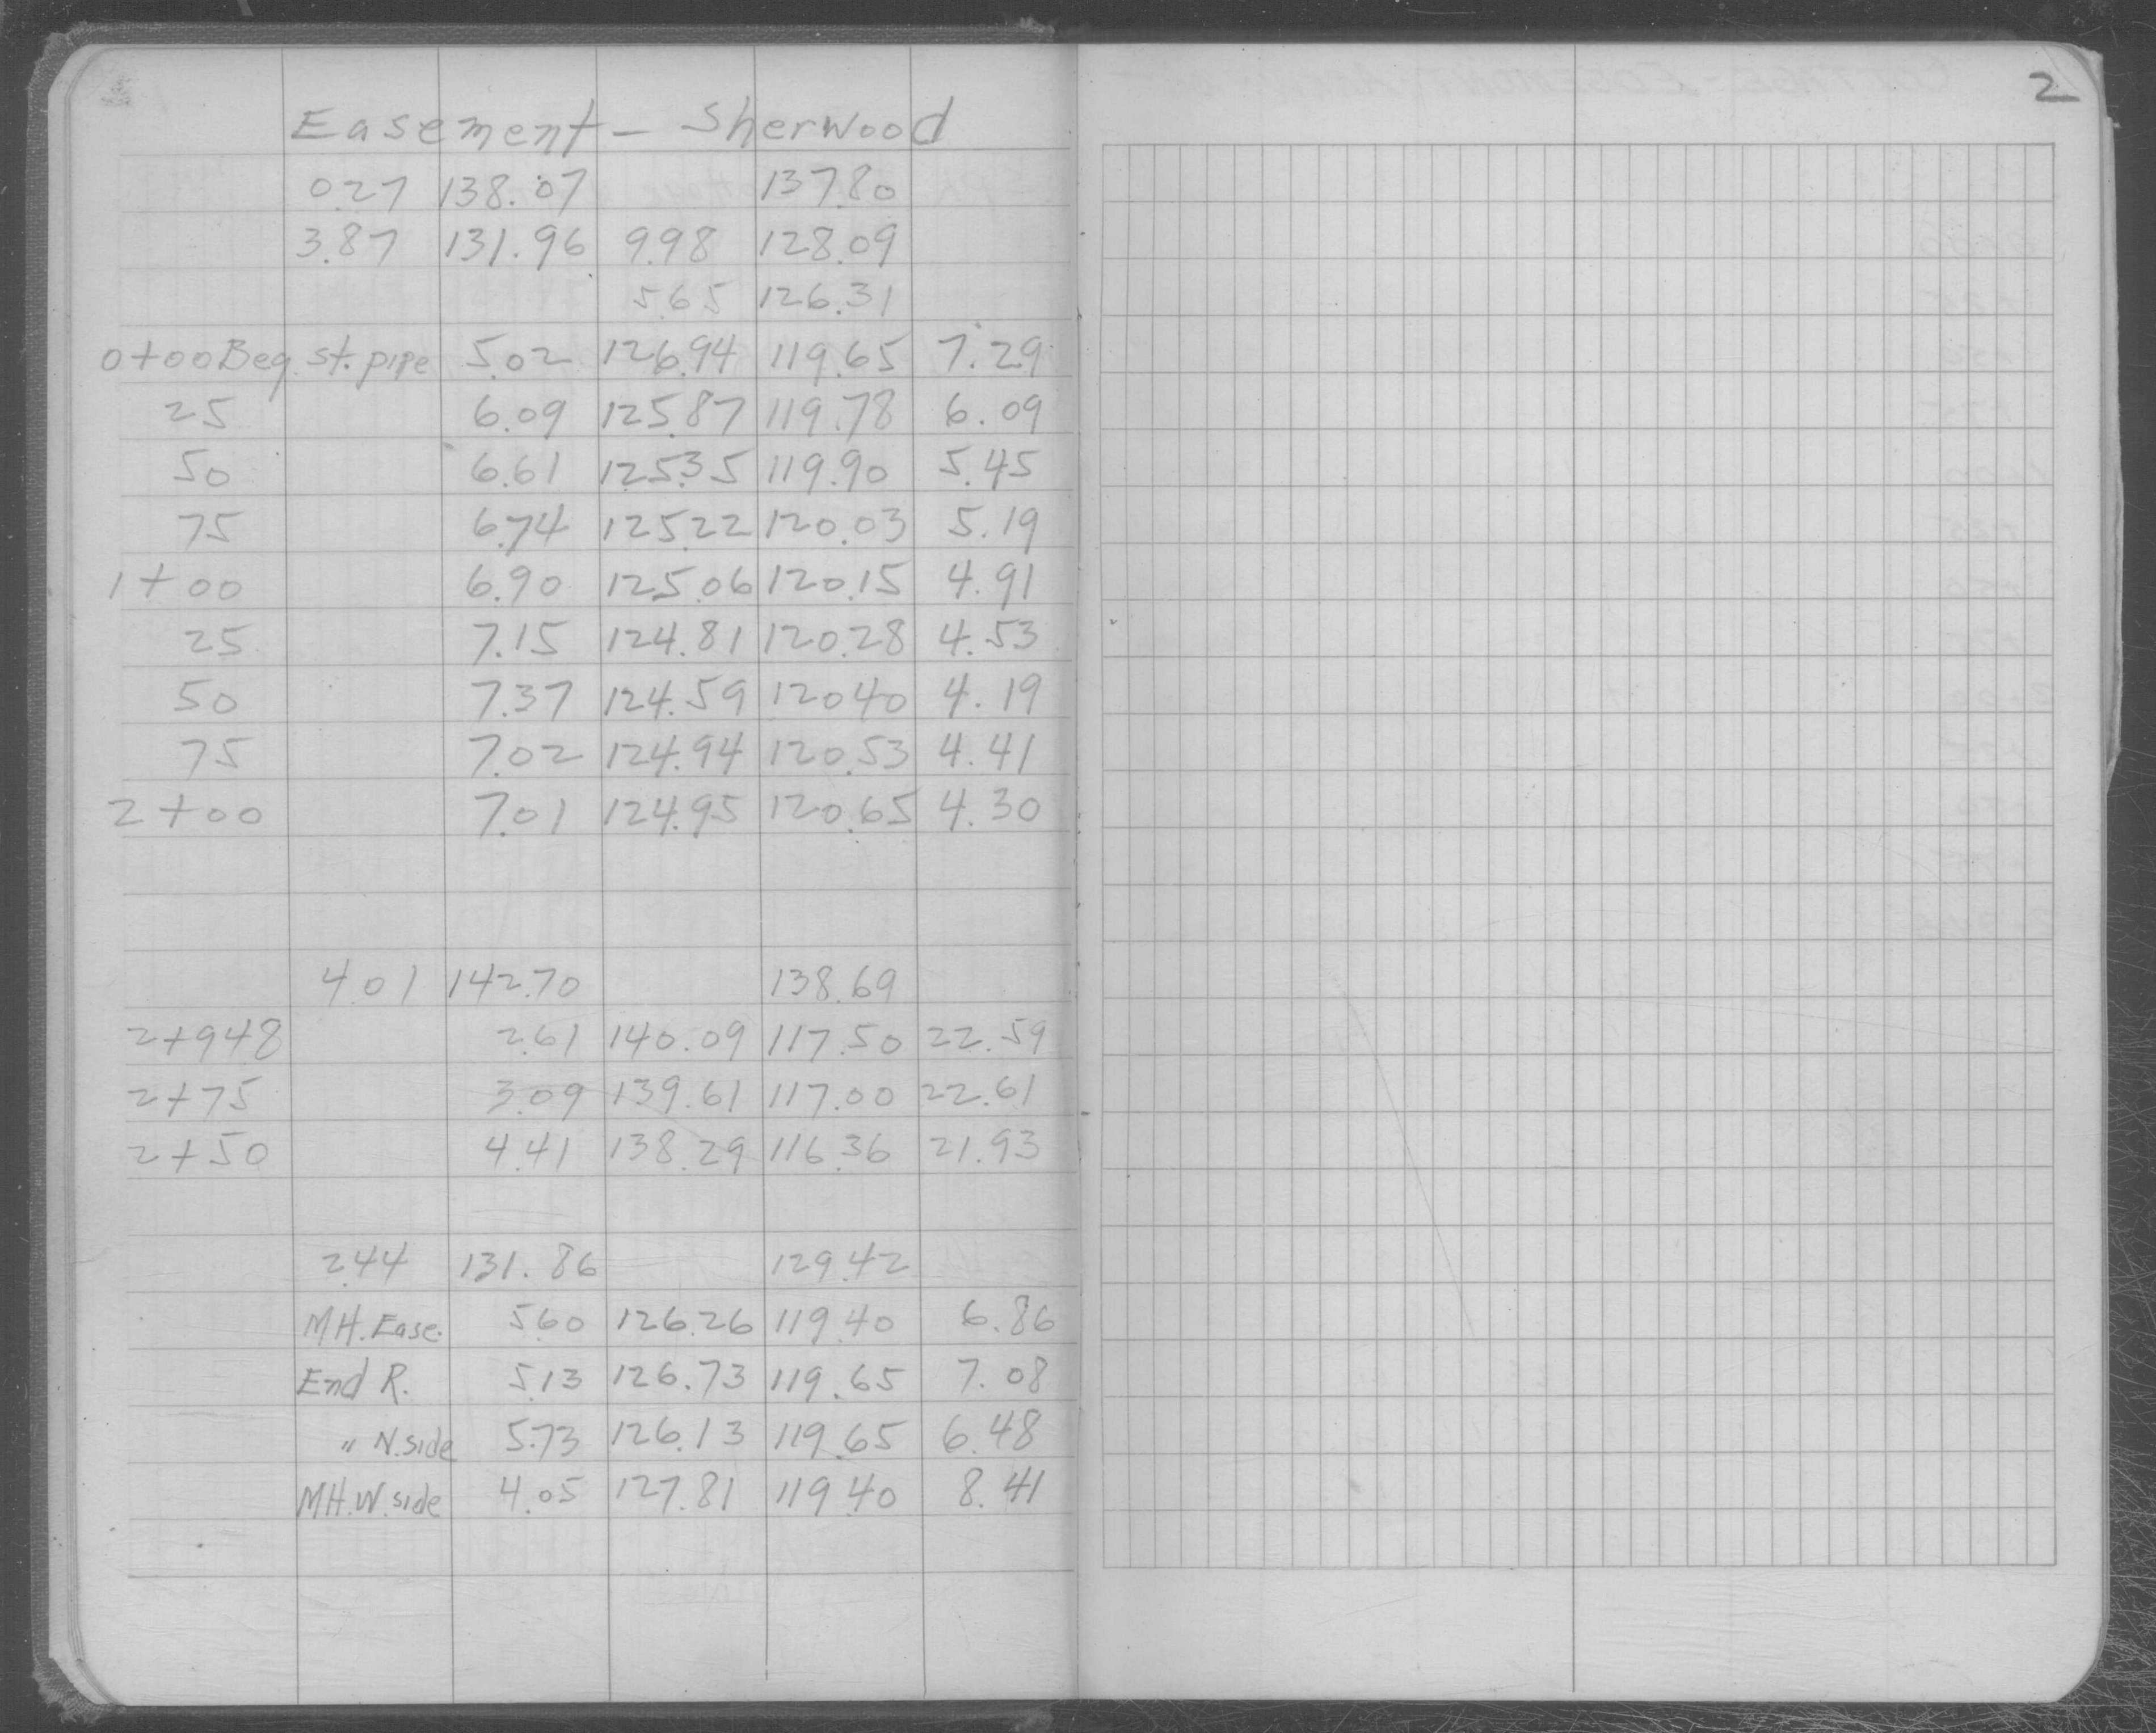 2
Easement - Sherwood
0.27 138.07 137.80
3.87 131.96 9.98 128.09
5.65 126.31
0+00 Beg. st. pipe 5.02 126.94 119.65 7.29
25 6.09 125.87 119.78 6.09
50 6.61 125.35 119.90 5.45
75 6.74 125.22 120.03 5.19
1+00 6.90 125.06 120.15 4.91
25 7.15 124.81 120.28 4.53
50 7.37 124.59 120.40 4.19
75 7.02 124.94 120.53 4.41
2+00 7.01 124.95 120.65 4.30
4.01 142.70 138.69
2+948 2.61 140.09 117.50 22.59
2+75 3.09 139.61 117.00 22.61
2+50 4.41 138.29 116.36 21.93
2.44 131.86 129.42
MH. Ease. 5.60 126.26 119.40 6.86
End R. 5.13 126.73 119.65 7.08
" N. side 5.73 126.13 119.65 6.48
MH. W. side 4.05 127.81 119.40 8.41